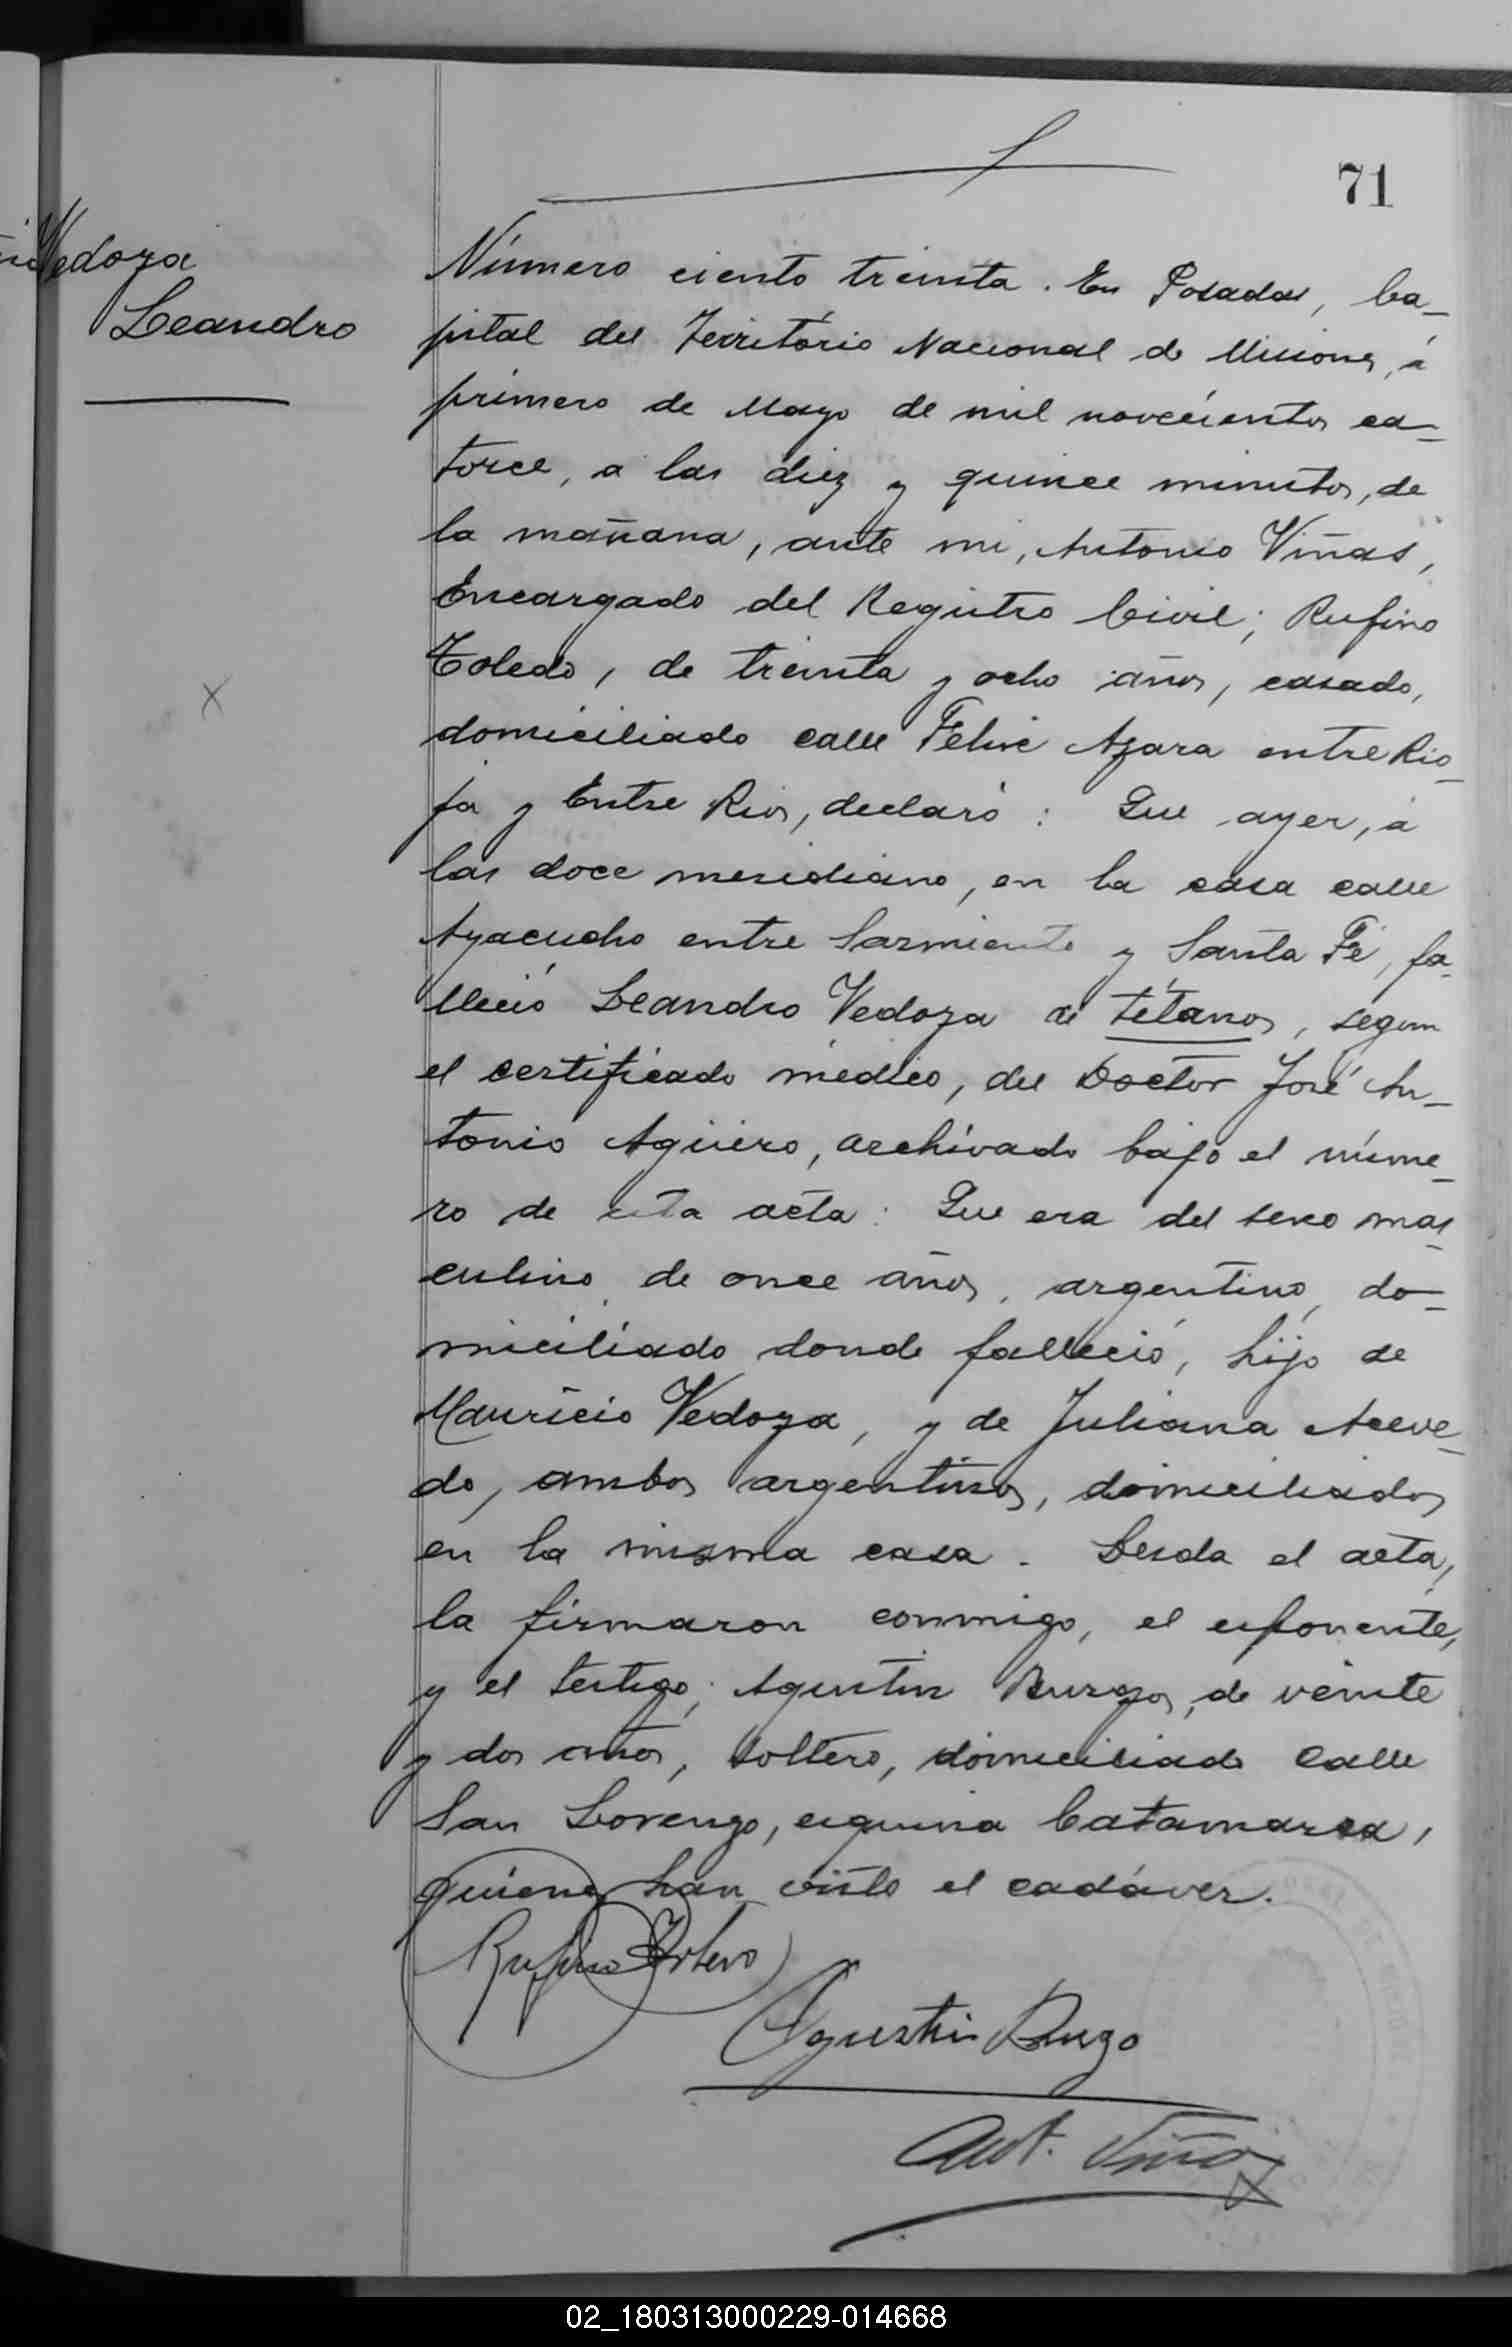 71
Vedoza
Leandro
Número ciento treinta. En Posadas, Ca-
pital del Territorio Nacional de Misiones, á
primero de Mayo de mil novecientos ca-
torce, a las diez y quince minutos, de
la mañana, ante mi, Antonio Viñas,
Encargado del Registro Civil; Rufino
Toledo, de treinta y ocho años, casado,
domiciliado calle Felix Azara entre Rio-
ja y Entre Rios, declaró: Que ayer, á
las doce meridiano, en la casa calle
Ayacucho entre Sarmiento y Santa Fé, fa-
lleció Leandro Vedoza de tétanos, segun
el certificado médico, del Doctor José An-
tonio Agüero, archivado bajo el núme-
ro de esta acta: Que era del sexo mas-
culino, de once años, argentino, do-
miciliado donde falleció, hijo de
Mauricio Vedoza, y de Juliana Aceve-
do, ambos argentinos, domiciliados
en la misma casa. Leida el acta,
la firmaron conmigo, el exponente,
y el testigo; Agustin Burgos, de veinte
y dos años, soltero, domiciliado calle
San Lorenzo, esquina Catamarca,
quienes han visto el cadáver.
Rufino Toledo
Agustin Burgo
Ant. Viñas
02_180313000229-014668